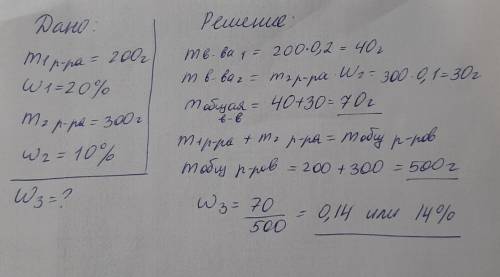 Дано:
m1 р-ра = 200г
W1=20%
m2 р-ра = 300г
W2 = 10%
W3=?
Решение:
m в-ва 1 = 200·0,2 = 40г
m в-ва 2 = m2 р-ра · W2 = 300·0,1=30г
m общая в-в = 40+30= 70г
m1 р-ра + m2 р-ра = m общ р-ров
m общ р-ров = 200 + 300 = 500г
W3 = 70/500 = 0,14 или 14%